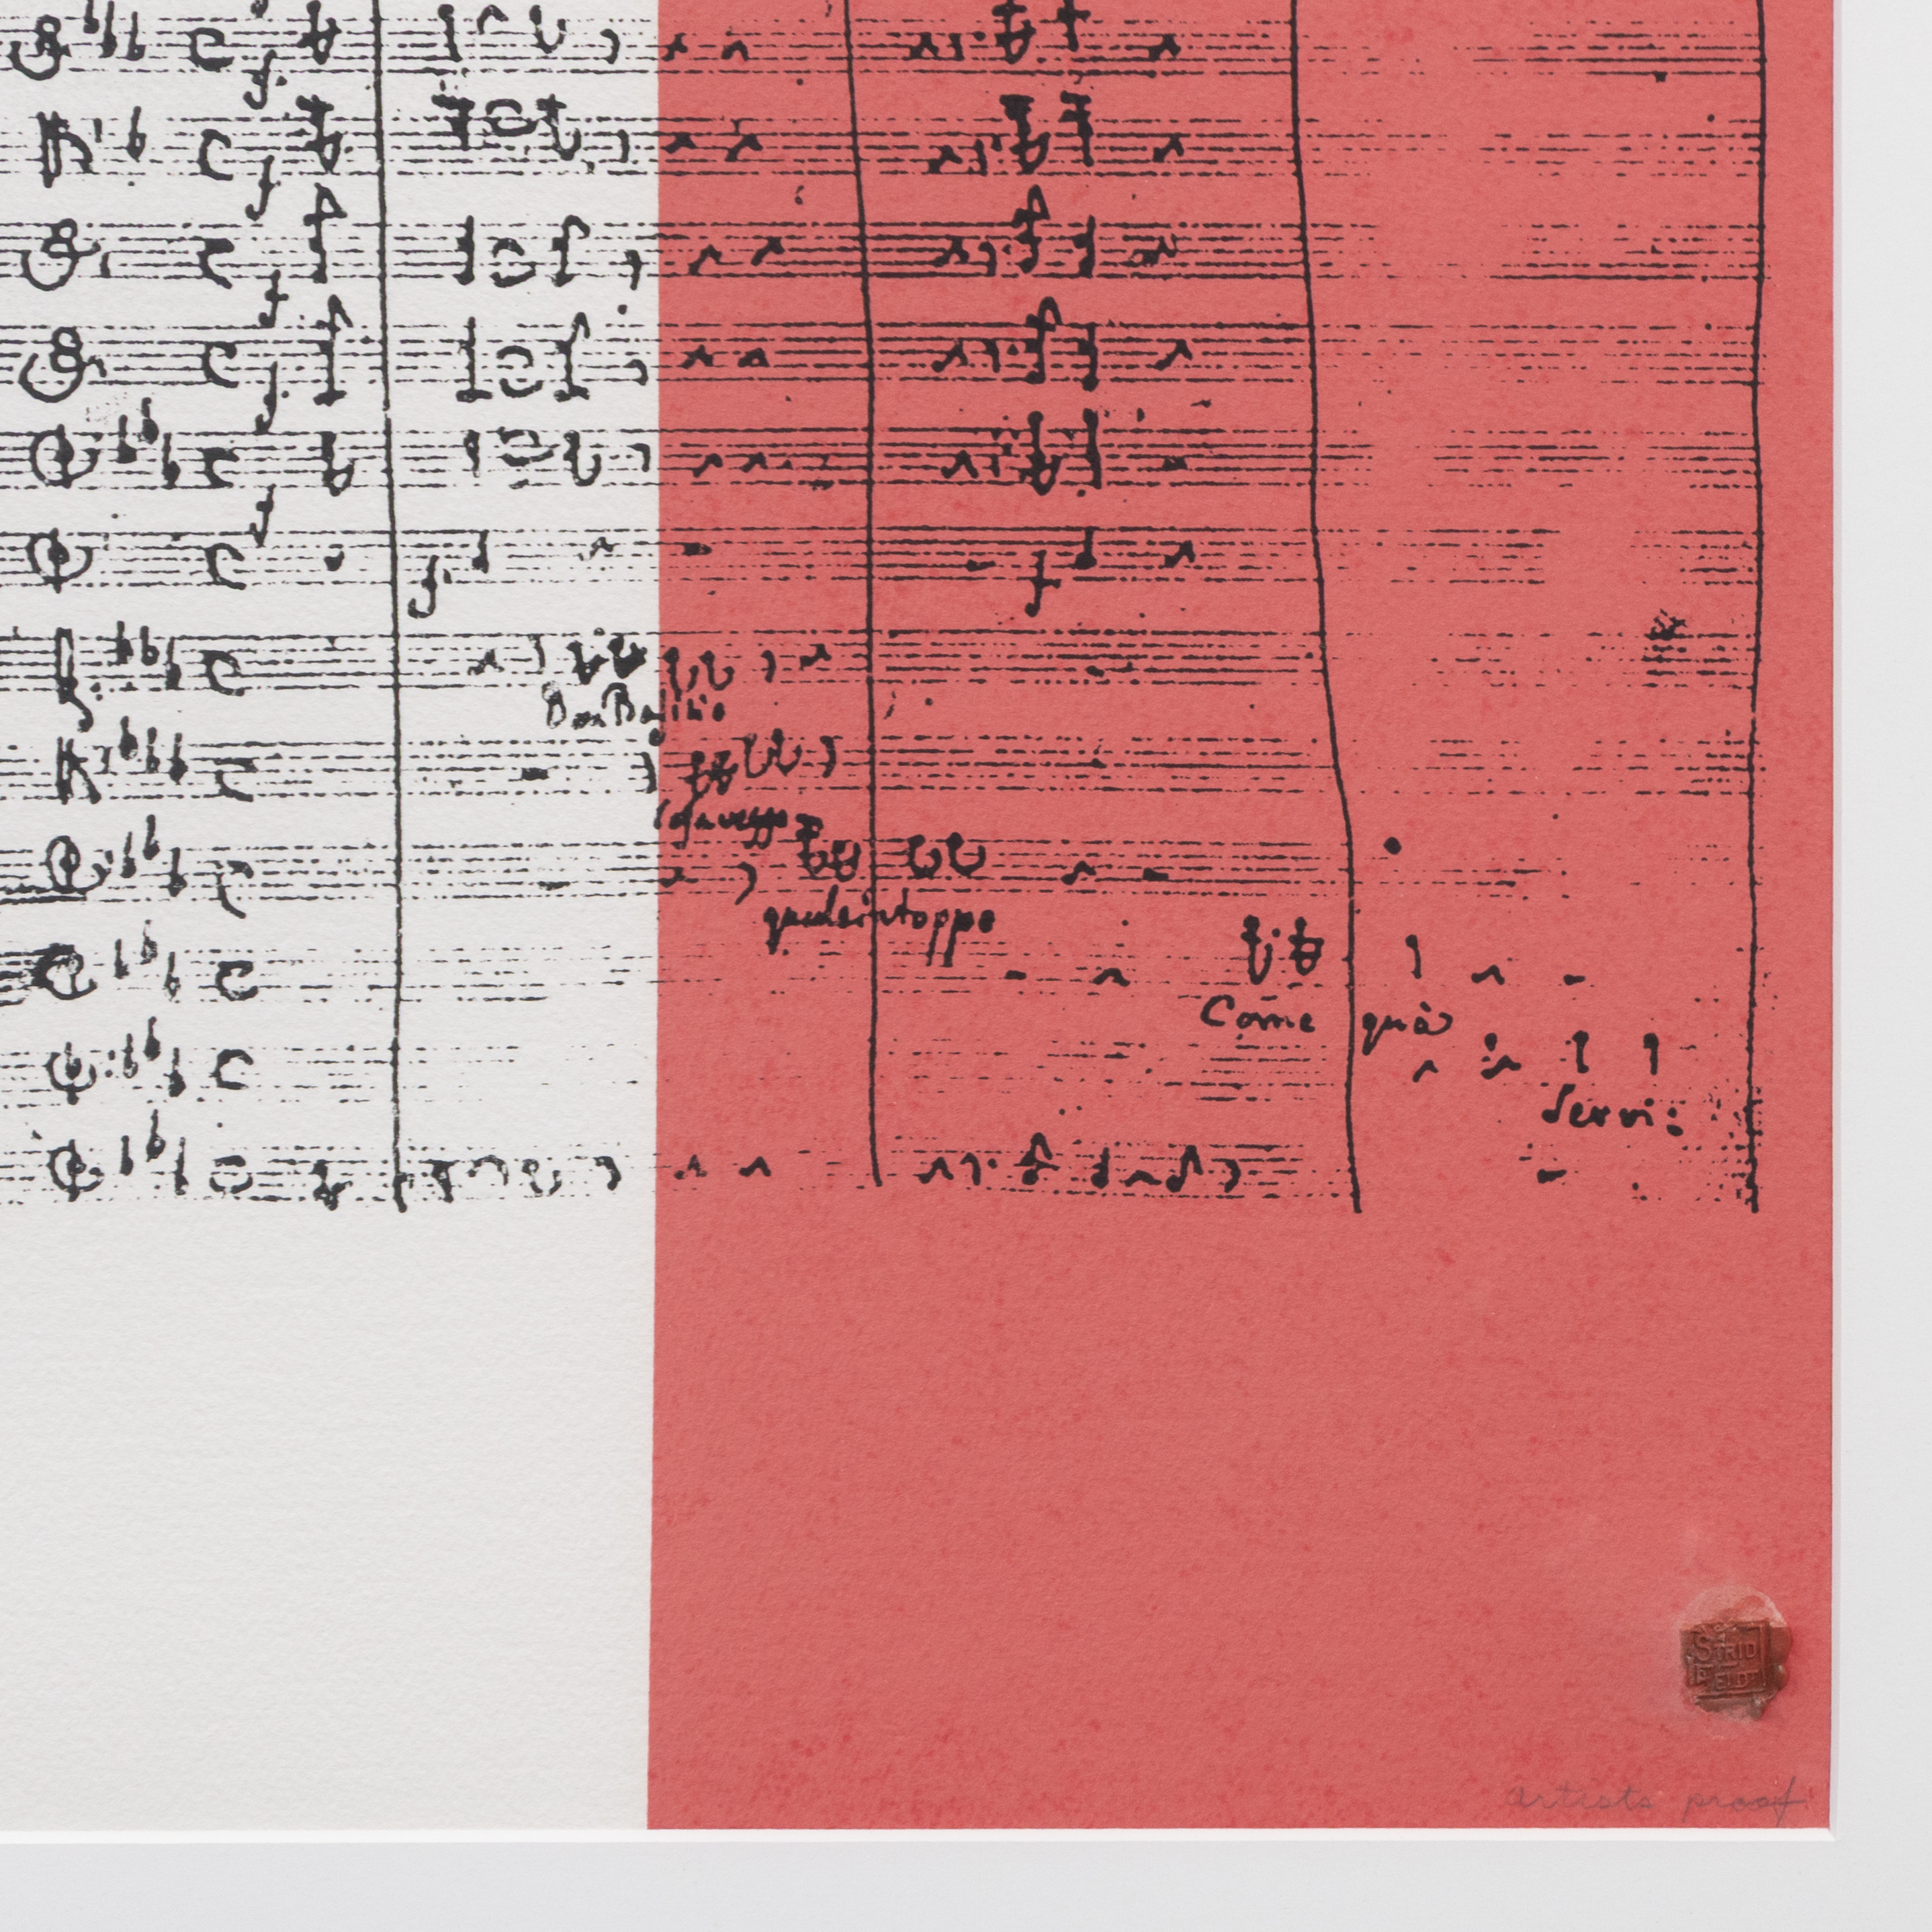 Don Basilio
Cosa veggo
quale intoppo
Come quà
Servi:
STRID
FELDT
artists proof